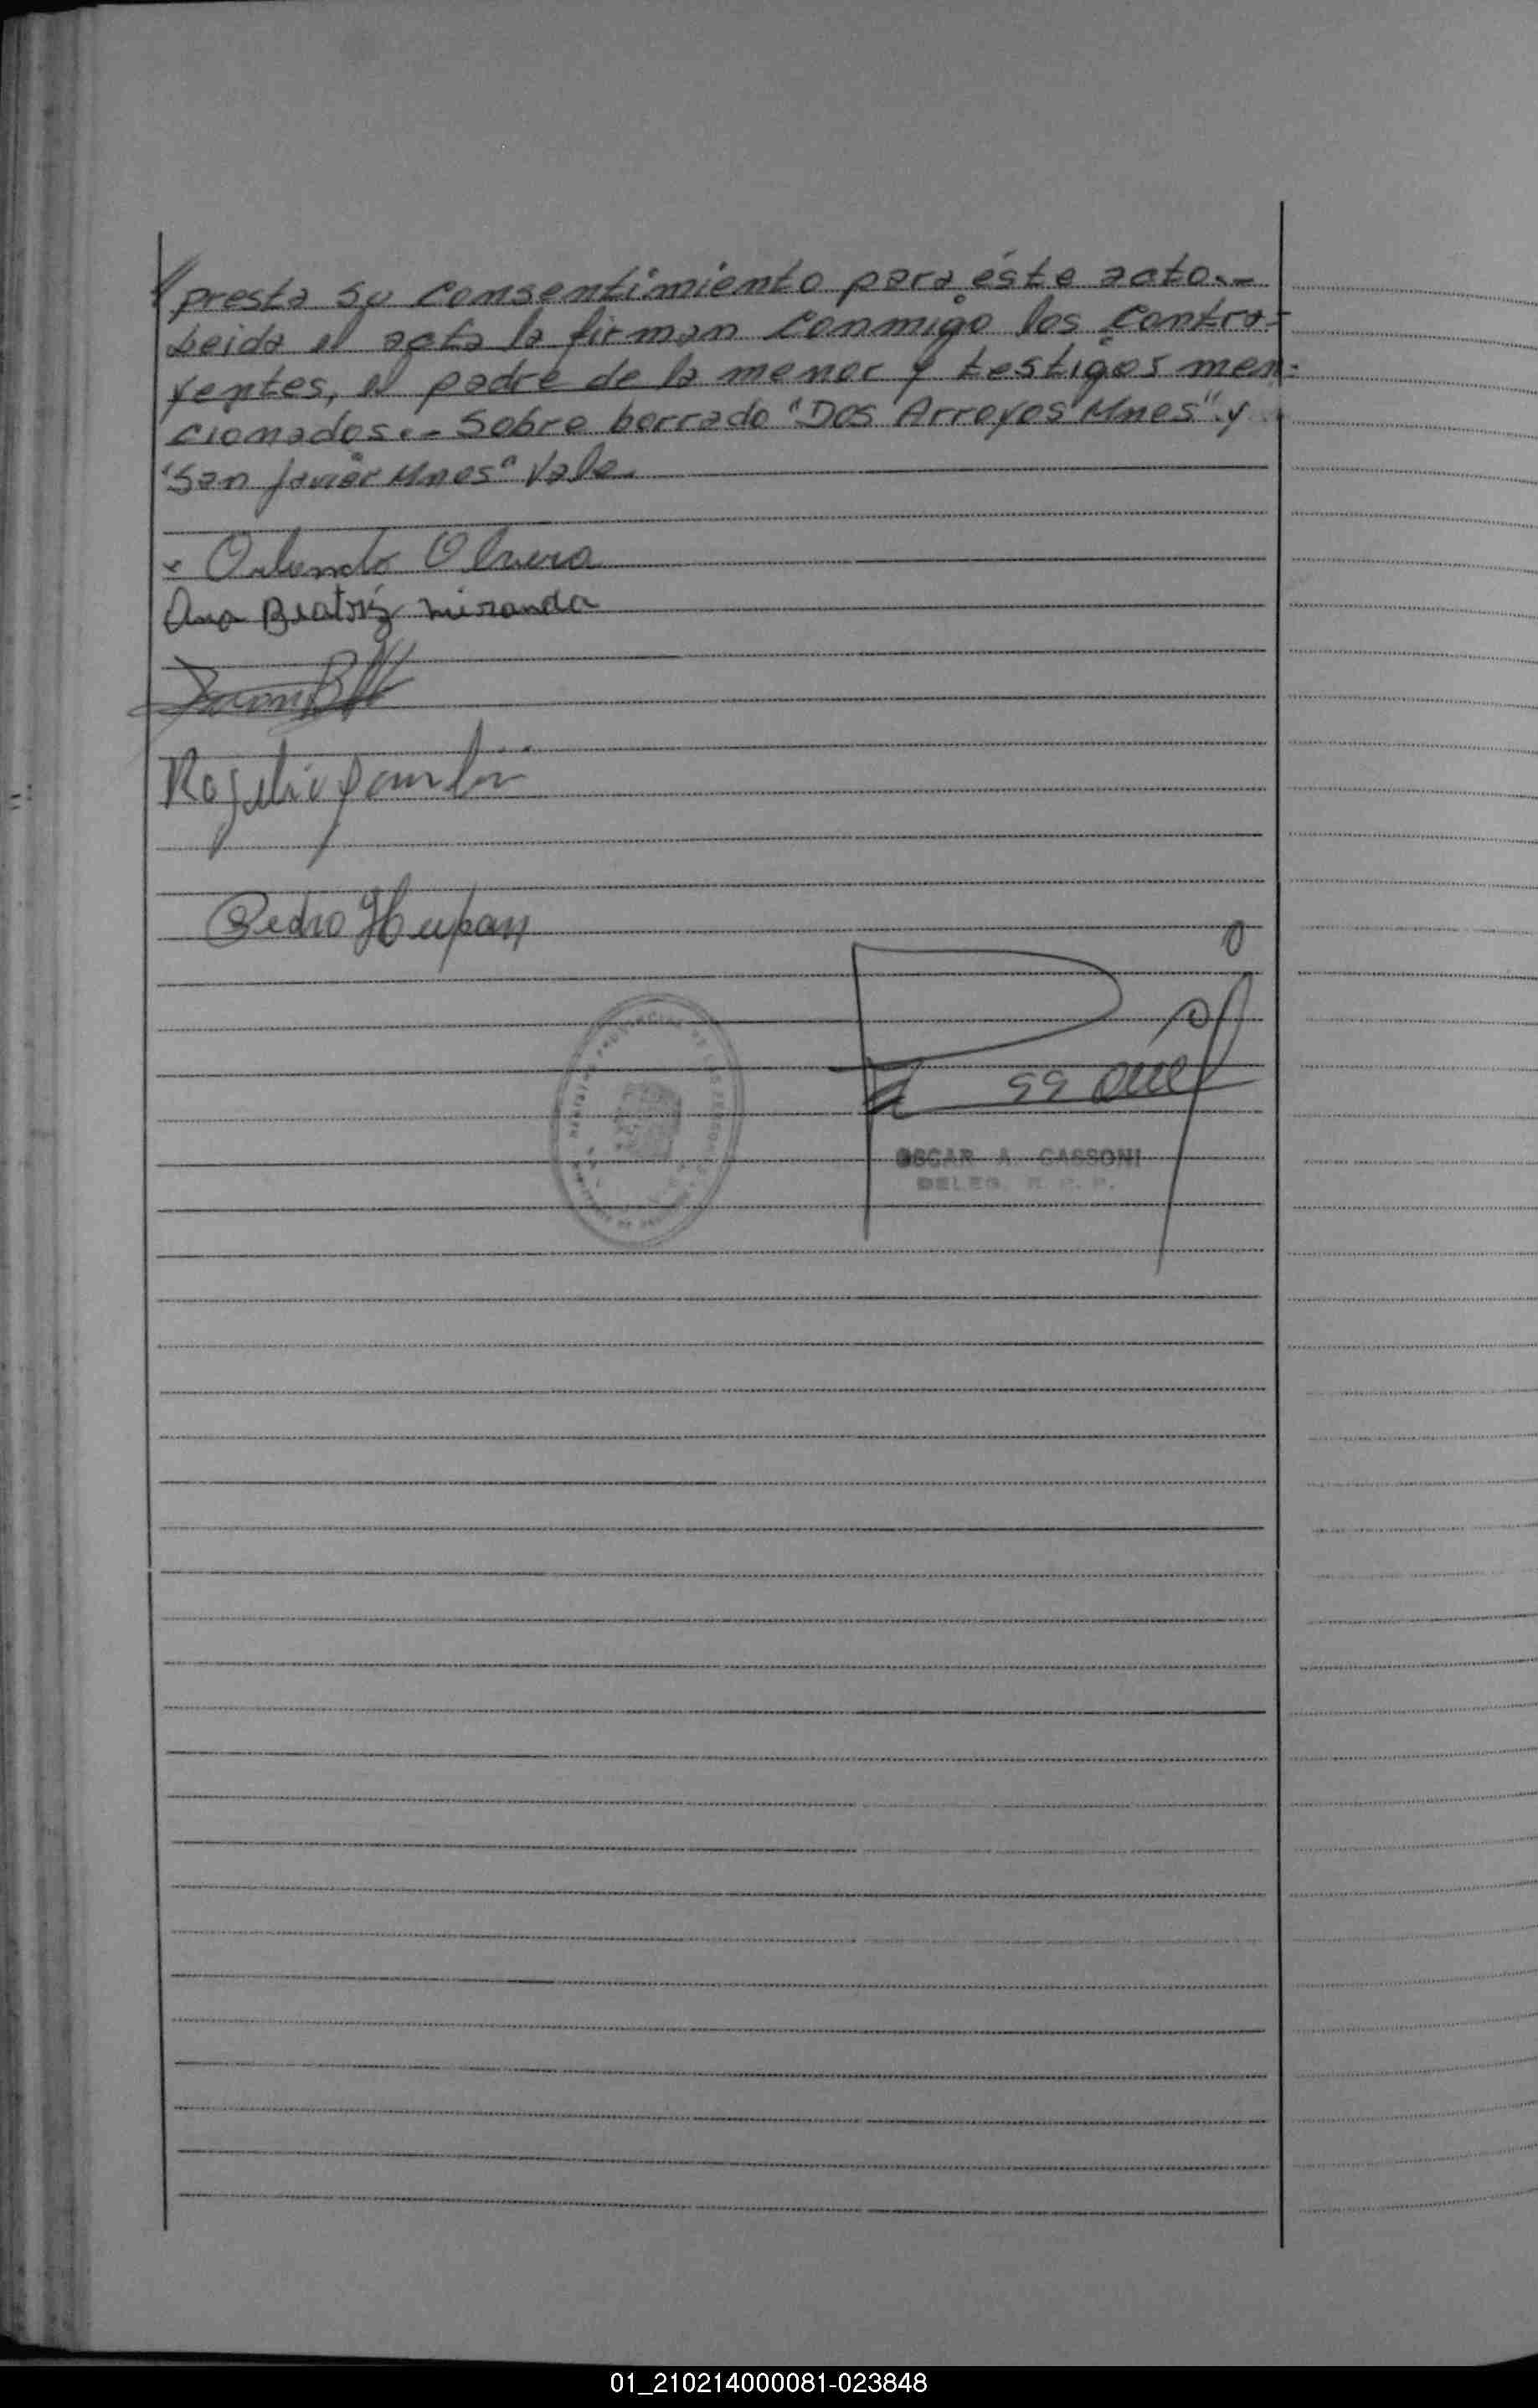 presta su consentimiento para éste acto.-
Leida el acta la firman conmigo los contra-
yentes, el padre de la menor y testigos men-
cionados.- Sobre borrado "Dos Arroyos Mnes" y
"San Javier Mnes" Vale
Orlando Olivera
Ana Beatriz Miranda
Rogelio
Pedro Hupan
OSCAR A. CASSONI
DELEG. R. P. P.
01_210214000081-023848